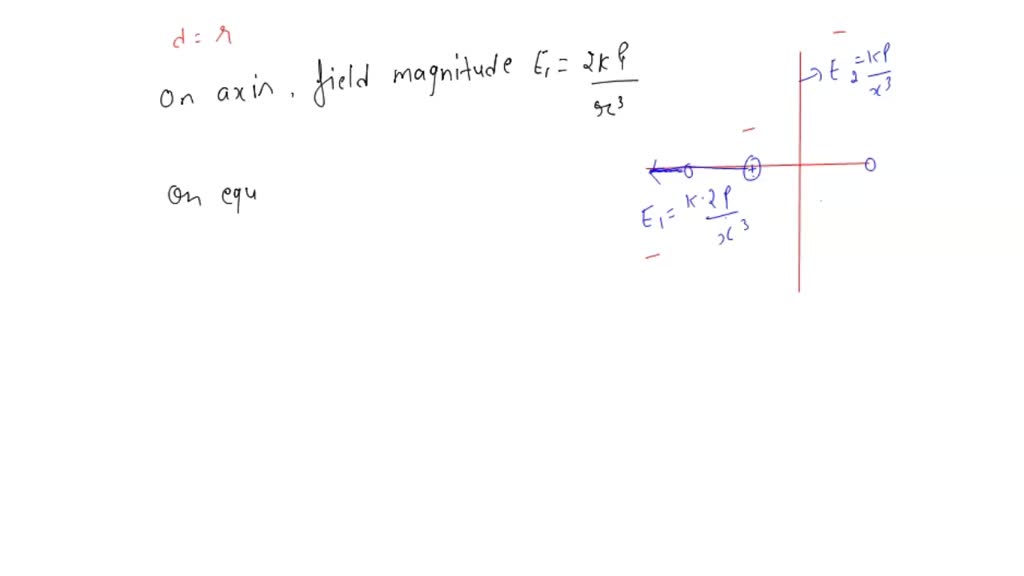 d = r
On axis, field magnitude E₁ = 2kP / r³
On equ
E₂ = kP / x³
E₁ = k·2P / x³